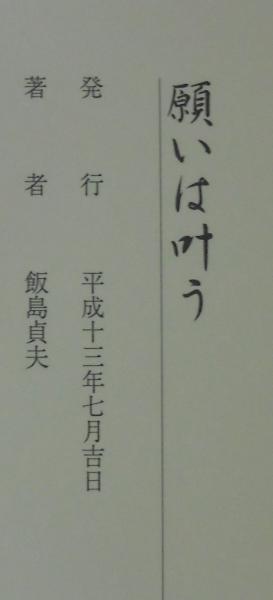 願いは叶う
発行 平成十三年七月吉日
著者 飯島貞夫